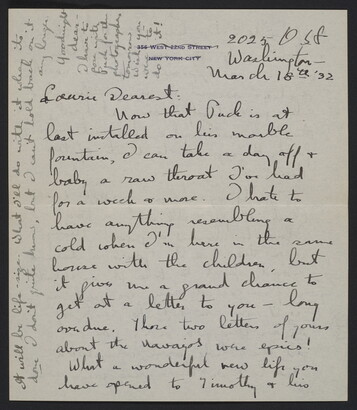 356 WEST 22ND STREET
NEW YORK CITY
2025 O St
Washington—
March 18th '32
Laurie Dearest:
Now that Puck is at
last installed on his marble
fountain, I can take a day off &
baby a raw throat I've had
for a week & more. I hate to
have anything resembling a
cold when I'm here in the same
house with the children, but
it gives me a grand chance to
get at a letter to you — long
overdue. Those two letters of yours
about the Navajos were epics!
What a wonderful new life you
have opened to Timothy & his
It will be life size. What I'll do with it when it's
done I don't quite know, but I can't hold back
any longer.
Goodnight
dear.